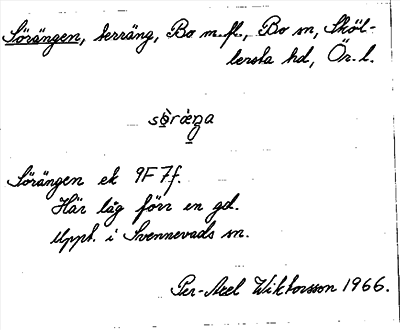 Sörängen, terräng, Bo m.fl., Bo sn, Sköl-
lersta hd, Ör. l.
sö̀ràŋa
Sörängen ek 9F7f.
Här låg förr en gd.
Uppt. i Svennevads sn.
Per-Axel Wiktorsson 1966.